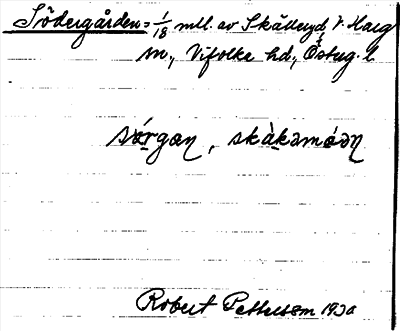 Södergården = 1/18 mtl. av Skälleryd V. Harg
sn., Vifolke hd., Östug. l.
sørgan, skàkəmóən
Robert Pettersson 1930